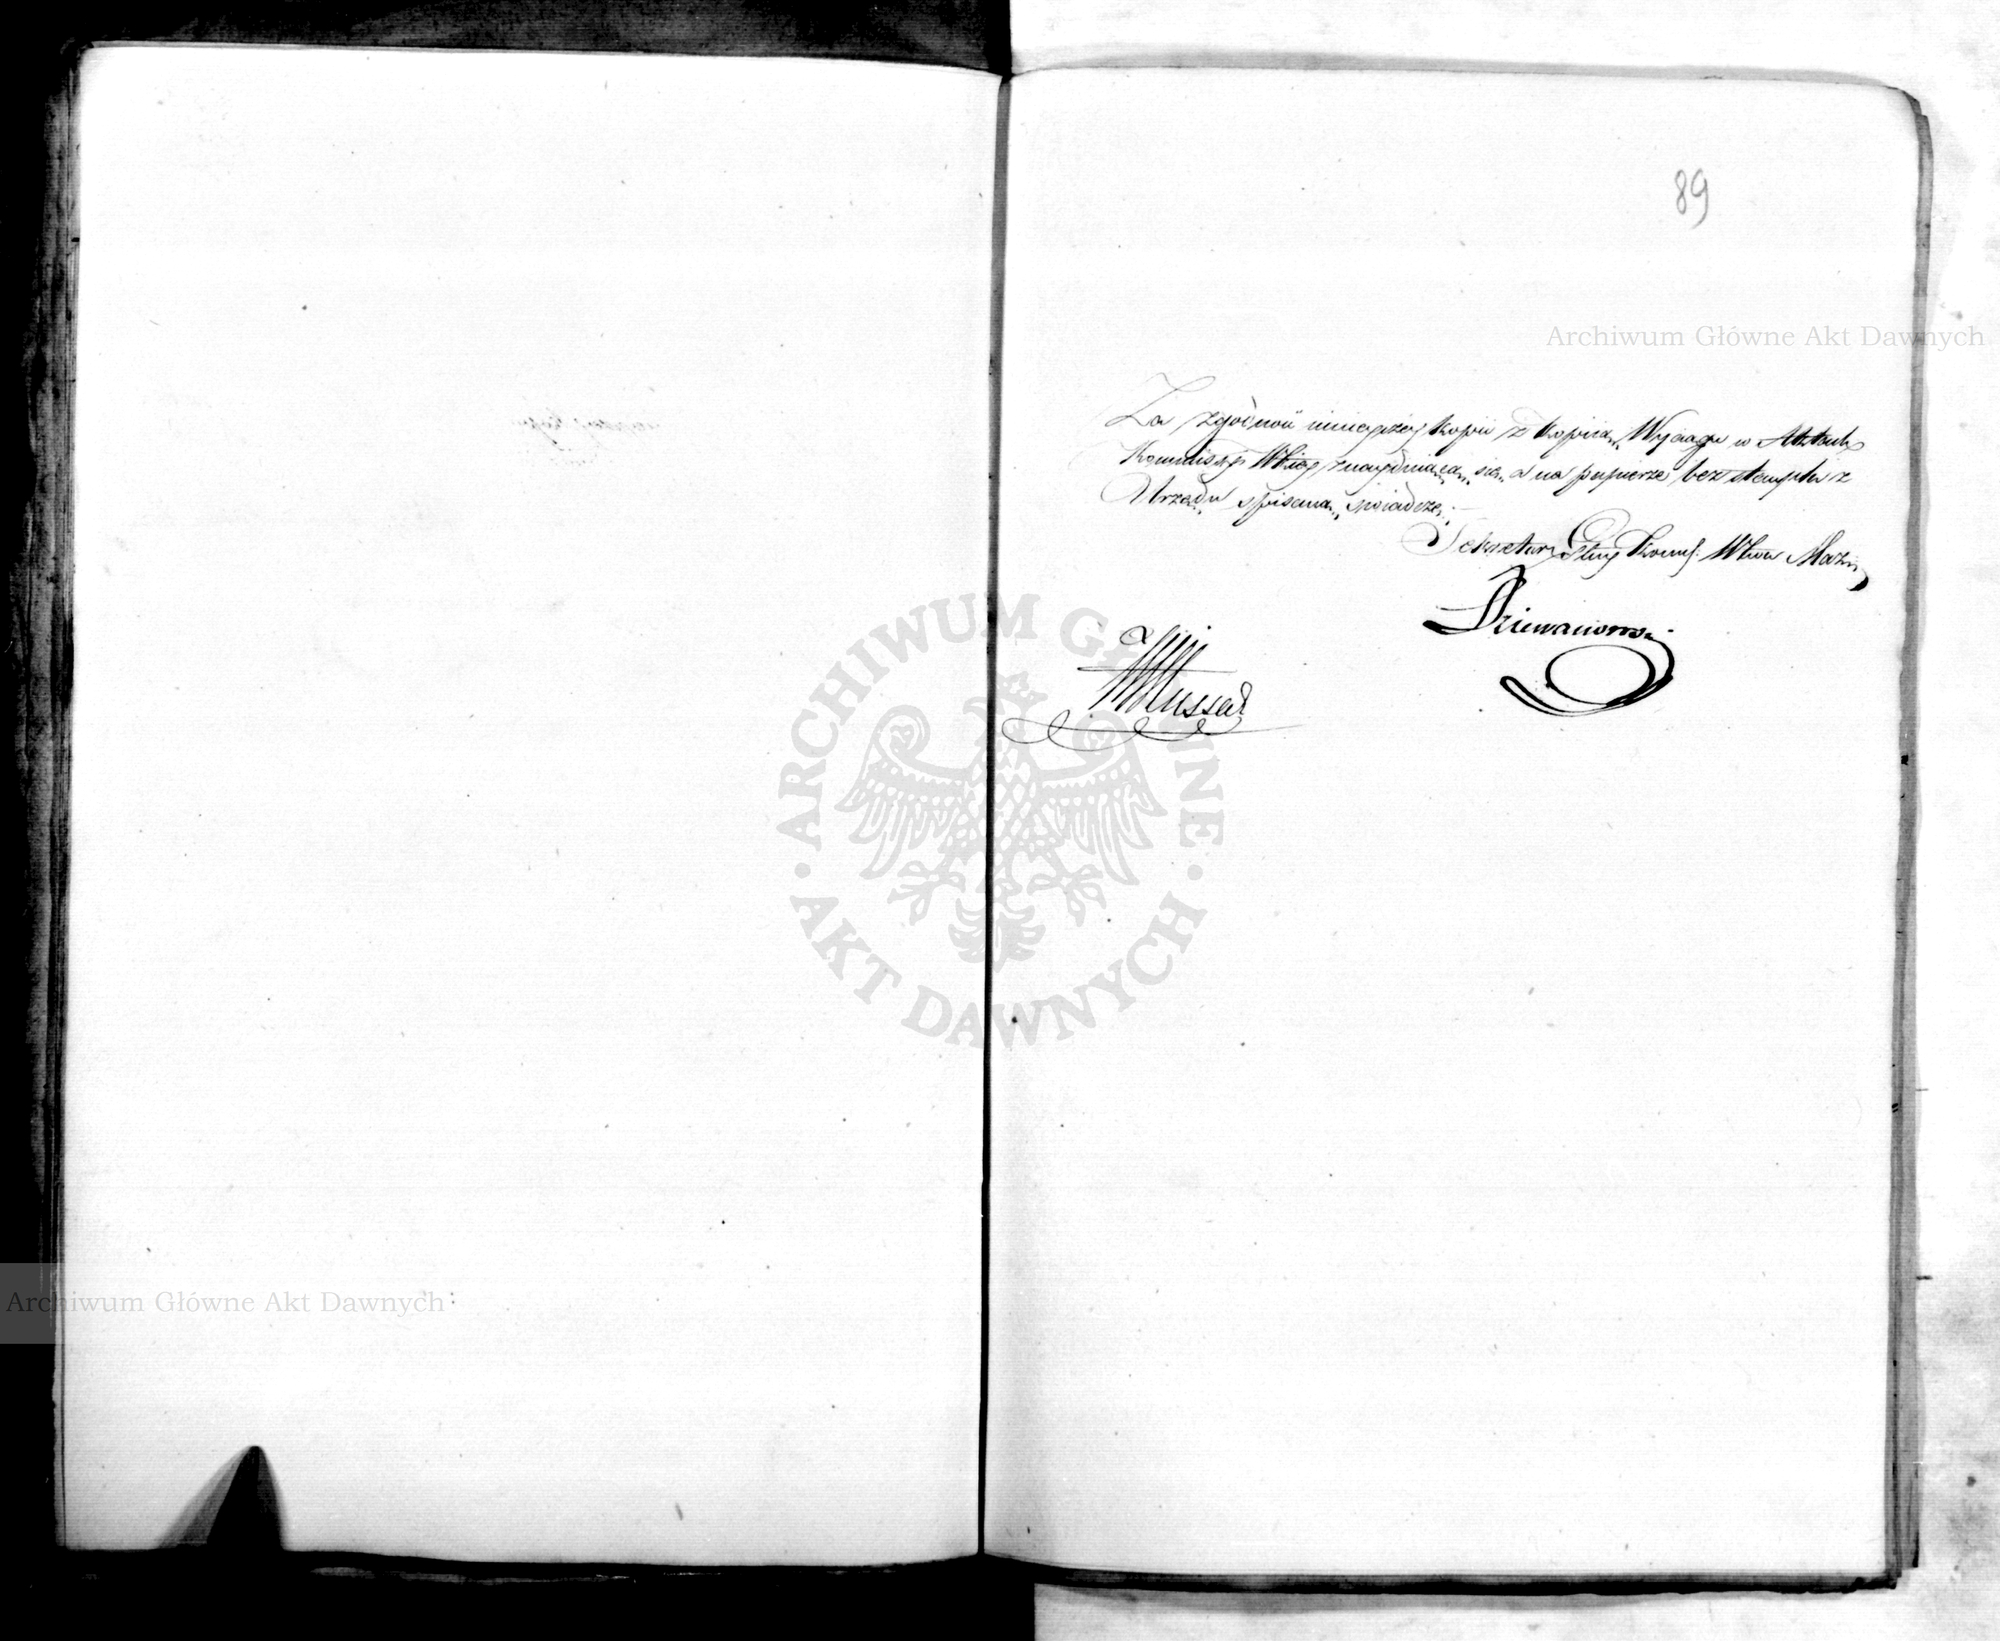 89
Archiwum Główne Akt Dawnych
Za zgodność ninieyszey kopii z kopią Wyciągu w Aktach
Kommissyi Wkiey znayduiącą się a na papierze bez stempla z
Urzędu spisaną, świadczę.
Sekretarz Głny Kom: Wtwa Maz:
Dziewanowski
ARCHIWUM GŁÓWNE
AKT DAWNYCH
Archiwum Główne Akt Dawnych